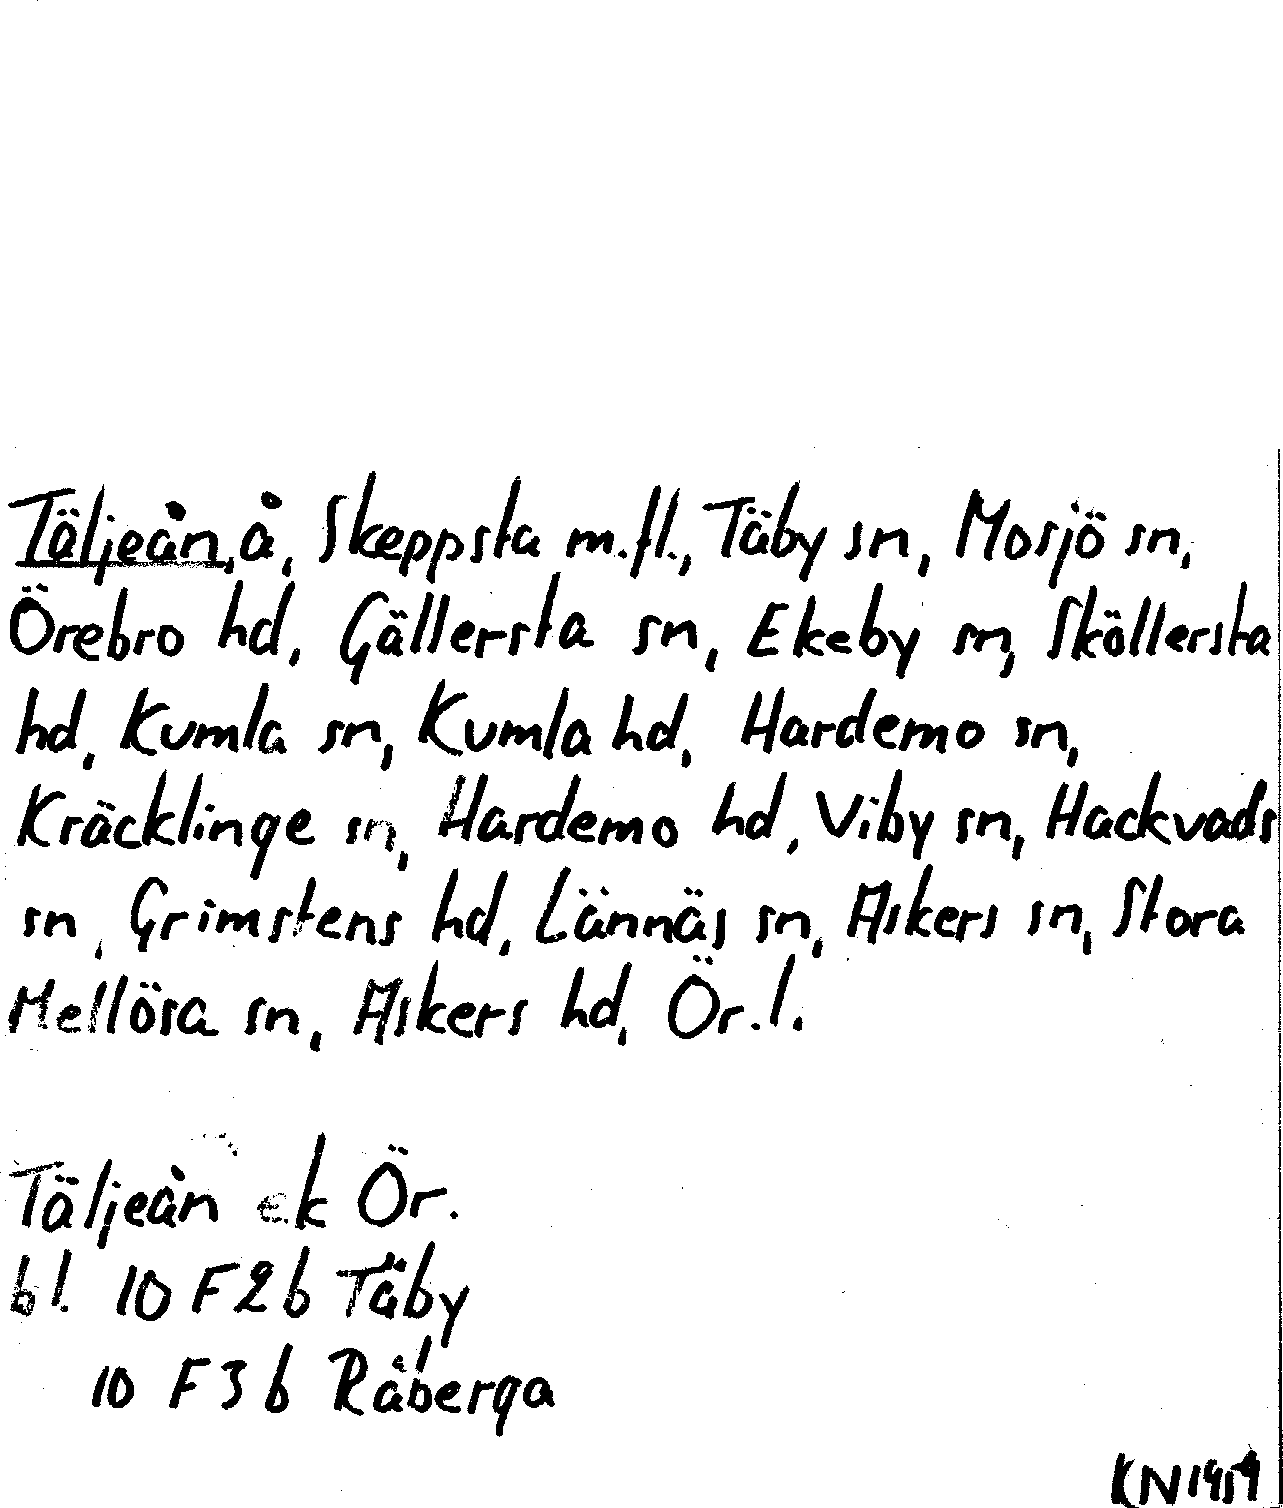 Täljeån, å, Skeppsta m.fl., Täby sn, Mosjö sn,
Örebro hd, Gällersta sn, Ekeby sn, Sköllersta
hd, Kumla sn, Kumla hd, Hardemo sn,
Kräcklinge sn, Hardemo hd, Viby sn, Hackvads
sn, Grimstens hd, Lännäs sn, Askers sn, Stora
Mellösa sn, Askers hd, Ör.l.
Täljeån ek Ör.
bl. 10 F2b Täby
10 F3b Råberga
KN 1959